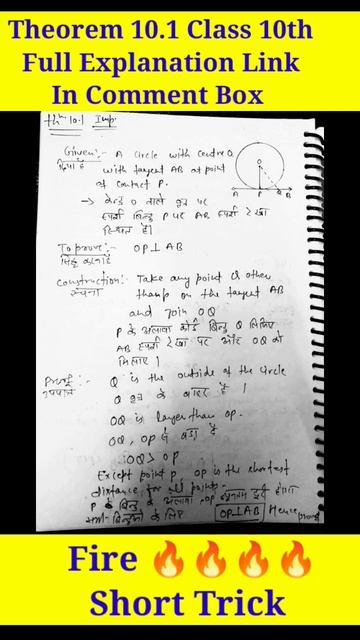 Theorem 10.1 Class 10th
Full Explanation Link
In Comment Box
Th 10.1 Imp.
Given:- A Circle with Centre O
दिया है with tangent AB at point
of contact P.
→ केन्द्र O वाले वृत्त पर
स्पर्श बिन्दु P पर AB स्पर्श रेखा
स्थित है।
O
A P Q B
To prove:- OP⊥AB
सिद्ध करना है
Construction:- Take any point Q other
रचना than p on the tangent AB
and join OQ
P के अलावा कोई बिन्दु Q लिजिए
AB स्पर्श रेखा पर और OQ को
मिलाए।
Proof:- Q is the outside of the Circle
उपपत्ति Q वृत्त के बाहर है।
OQ is layer than op.
OQ, OP से बड़ा है
OQ > OP
Except point p op is the shortest
distance for all points.
P के बिन्दु के अलावा, OP न्यूनतम दूरी होगा
सभी बिन्दुओं के लिए OP⊥AB Hence proved
Fire 🔥🔥🔥🔥
Short Trick